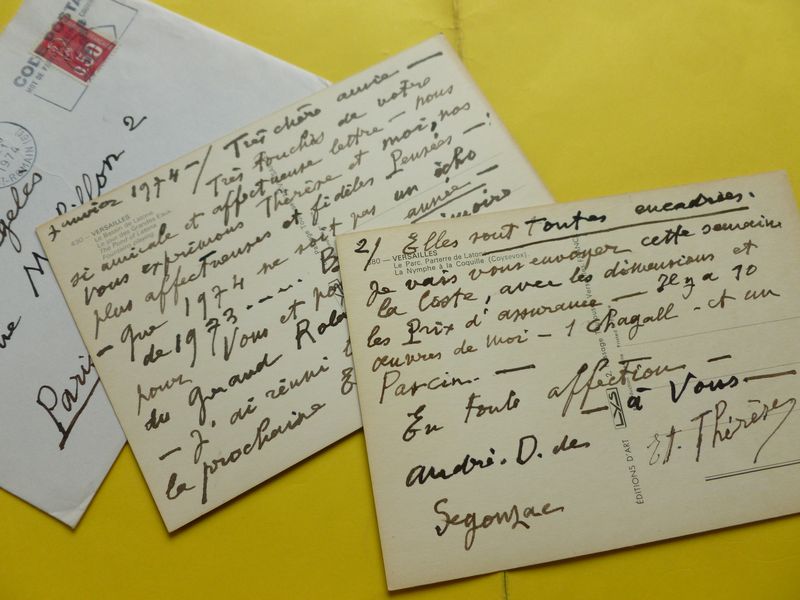 CODE POSTAL
0.50
1974
Millon 2
Paris
7 Janvier 1974 - / Très chère amie —
Très touchés de votre
si amicale et affectueuse lettre — nous
vous exprimons Thérèse et moi, nos
plus affectueuses et fidèles Pensées —
— que 1974 ne soit pas un écho
de 1973 ....
année —
pour Vous et
du Grand
— J'ai réuni
la prochaine
490 - VERSAILLES
Le Bassin de Latone
Le jour des Grandes Eaux
2/ Elles sont toutes encadrées.
VERSAILLES
Le Parc. Parterre de Latone
La Nymphe à la Coquille (Coysevox).
Je vais vous envoyer cette semaine
la liste, avec les dimensions et
les Prix d'assurance — Il y a 90
œuvres de moi — 1 Chagall — et un
Pascin. —
En toute affection —
— à Vous —
andré. D. de
Segonzac
Et. Thérèse
ÉDITIONS D'ART
LYS